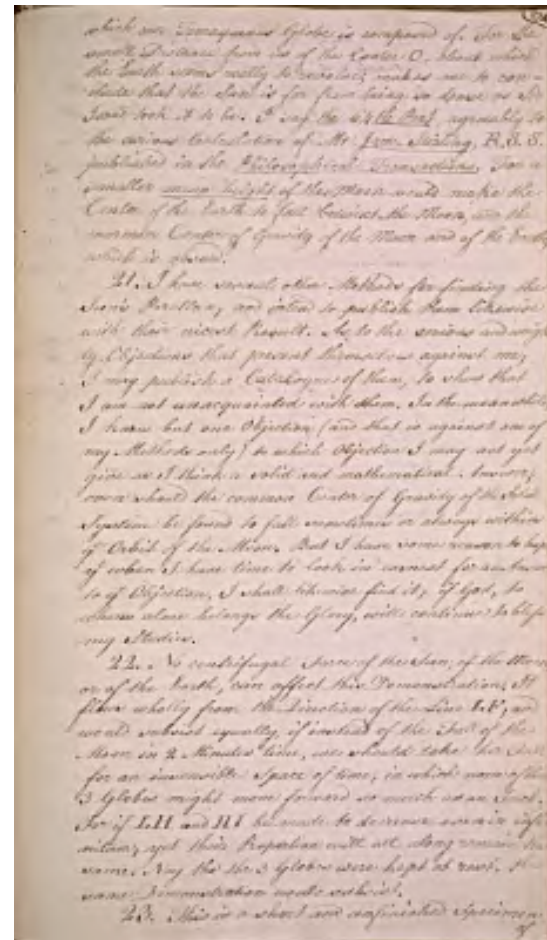 which our Terraqueous Globe is composed of. For the
small Distance from us of the Center O, about which
the Earth seems really to revolve, makes me to con-
clude that the Sun is far from being so dense as Sir
Isaac took it to be. I say the agreably to
the curious Calculation of Mr James Stirling, R.S.S.
published in the Philosophical Transactions. For a
smaller mean height of the Moon would make the
Center of the Earth to fall betwixt the Moon and the
common Center of Gravity of the Moon and of the Earth
which is absurd.
21. I have several other Methods for finding the
Sun's Parallax, and intend to publish them likewise
with their nicest Result. As to the various and weigh
ty Objections that present themselves against me,
I may publish a Catalogue of them, to shew that
I am not unacquainted with them. In the meanwhile
I know but one Objection (and that is against one of
my Methods only) to which Objection I may not yet
give as I think a solid and mathematical Answer,
should the common Center of Gravity of the Solar
System be found to fall sometimes or always within
ye Orbit of the Moon. But I have some reason to hope
yt when I have time to look in earnest for an Answer
to yt Objection, I shall likewise find it, if God, to
whom alone belongs the Glory, will continue to bless
my Studies.
22. No centrifugal Force of the Sun, of the Moon
or of the Earth, can affect this Demonstration. It
flows wholly from the Direction of the Line LF, and
would subsist equally, if instead of the Fall of the
Moon in 2 Minutes time, we should take her Fall
for an insensible Space of time, in which none of the
3 Globes might move forward so much as an Inch.
For if LH and HI be made to decrease even in infi
nitum, yet their Proportion will all along remain the
same. Nay tho the 3 Globes were kept at rest, the
same Demonstration would subsist.
23. This is a short and unfinished Specimen
of